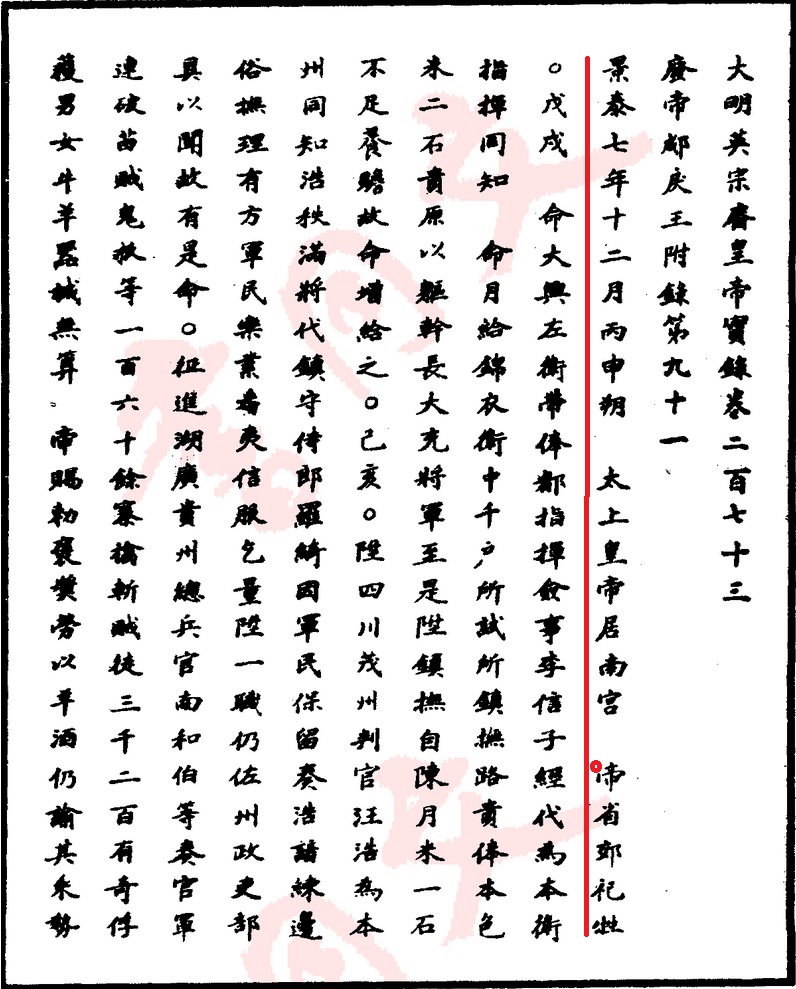 大明英宗睿皇帝實錄卷二百七十三
廢帝郕戾王附錄第九十一
景泰七年十二月丙申朔 太上皇帝居南宮 帝省郊祀牲
○戊戌 命大興左衛帶俸都指揮僉事李信子經代為本衛
指揮同知 命月給錦衣衛中千戶所試所鎮撫路貴俸本色
米二石貴原以軀幹長大充將軍至是陞鎮撫自陳月米一石
不足養贍故命增給之○己亥○陞四川茂州判官汪浩為本
州同知浩秩滿將代鎮守侍郎羅綺因軍民保留奏浩諳練邊
俗撫理有方軍民樂業番夷信服乞量陞一職仍佐州政吏部
具以聞故有是命○征進湖廣貴州總兵官南和伯等奏官軍
連破苗賊鬼板等一百六十餘寨擒斬賊徒三千二百有奇俘
穫男女牛羊器械無算 帝賜勑褒獎勞以羊酒仍諭其乘勢